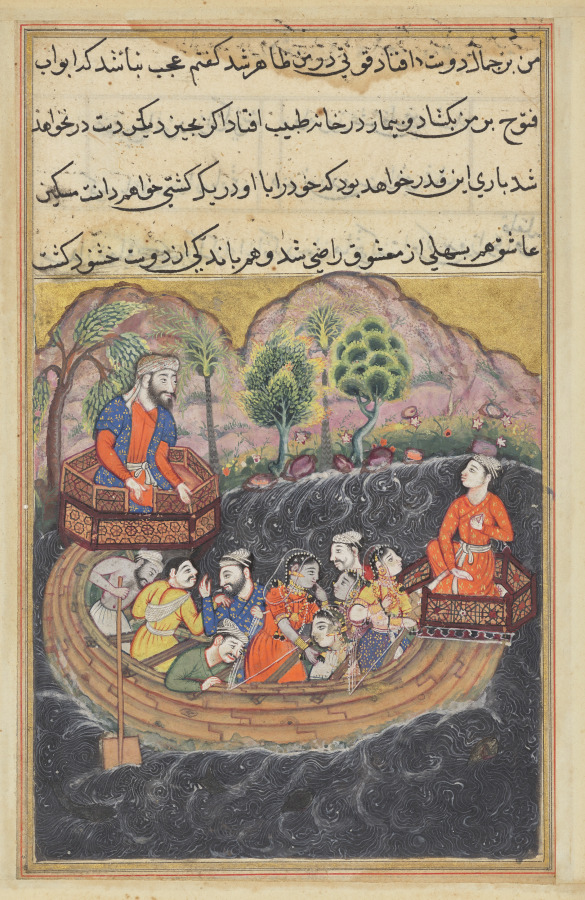 من بر جمال دوست افتاد قوتی در من ظاهر شد گفتم عجب نباشد که ابواب
فتوح بر من بکشاد و بیمار در خانه طبیب افتاد اگر بمجین دیگر دست در نخواهد
شد باری این قدر خواهد بود که خود را با او در یک کشتی خواهم دانست مسکین
عاشق هم بسهلی از معشوق راضی شد و هم باندکی از دوست خشنود گشت